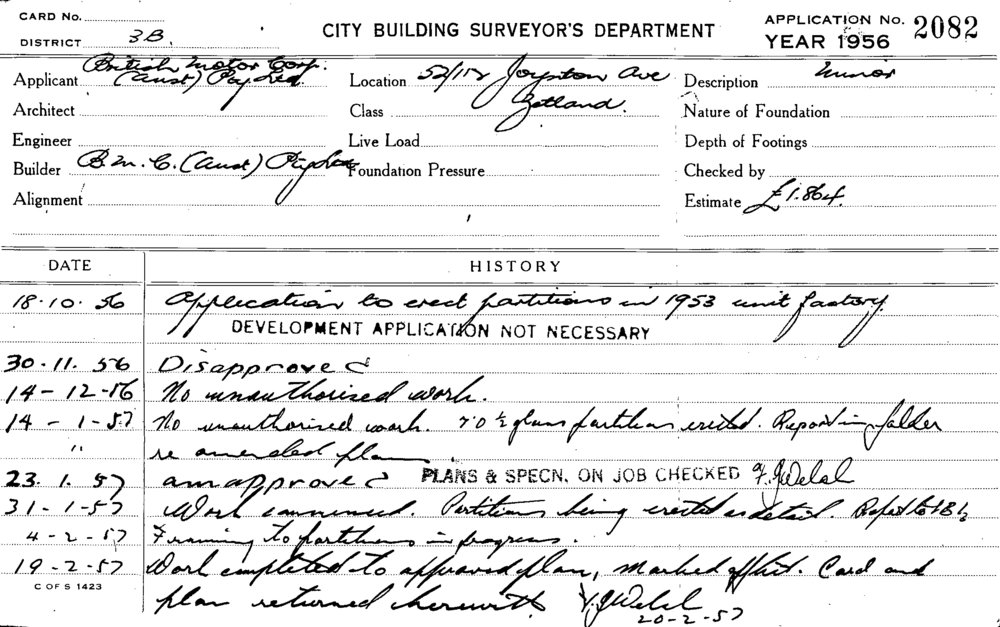 CARD No.
DISTRICT 3B.
CITY BUILDING SURVEYOR'S DEPARTMENT
APPLICATION No. 2082
YEAR 1956
British Motor Corp.
Applicant (Aust) Pty Ltd
Location 52/112 Joynton Ave
Description Minor
Architect
Class Zetland.
Nature of Foundation
Engineer
Live Load
Depth of Footings
Builder B.M.C. (Aust) Pty Ltd
Foundation Pressure
Checked by
Alignment
Estimate £1.864.
DATE HISTORY
18.10.56 Application to erect partitions in 1953 unit factory.
DEVELOPMENT APPLICATION NOT NECESSARY
30.11.56 Disapproved
14-12-56 No unauthorised work.
14-1-57 No unauthorised work. No ½ glass partitions erected. Report in folder
" re amended plan
23.1.57 am approved PLANS & SPECN. ON JOB CHECKED F.J Welsh
31-1-57 Work commenced. Partitions being erected as detail.
4-2-57 Framing to partitions in progress.
19-2-57 Work completed to approved plan, Marked off list. Card and
C OF S 1423
plan returned herewith. F.J Welsh
20-2-57